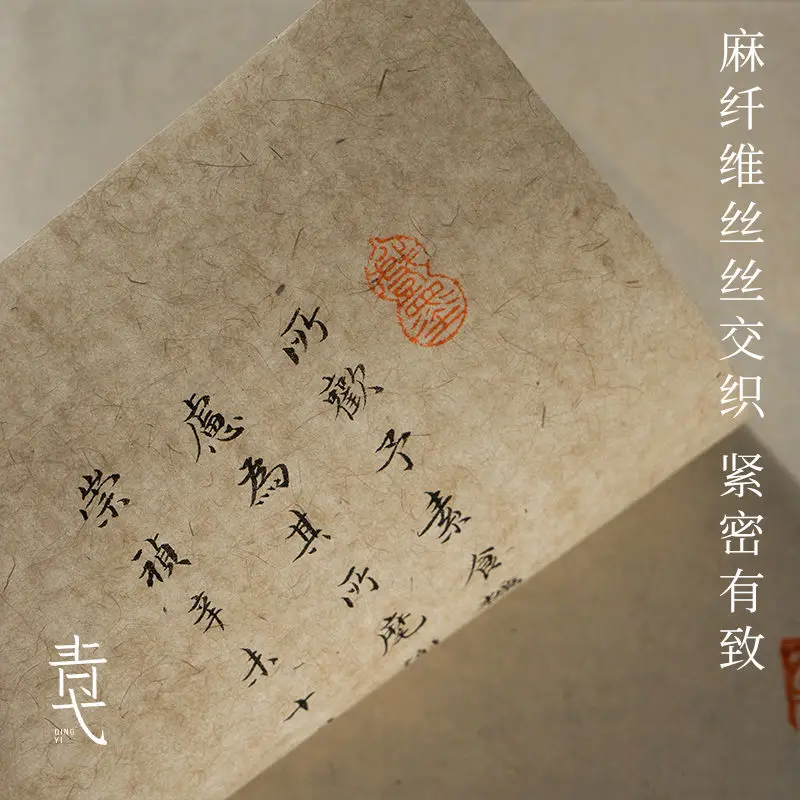 麻纤维丝丝交织 紧密有致
所歡予素食
慮為其所麾
崇禎辛未十
青弋
QING
YI